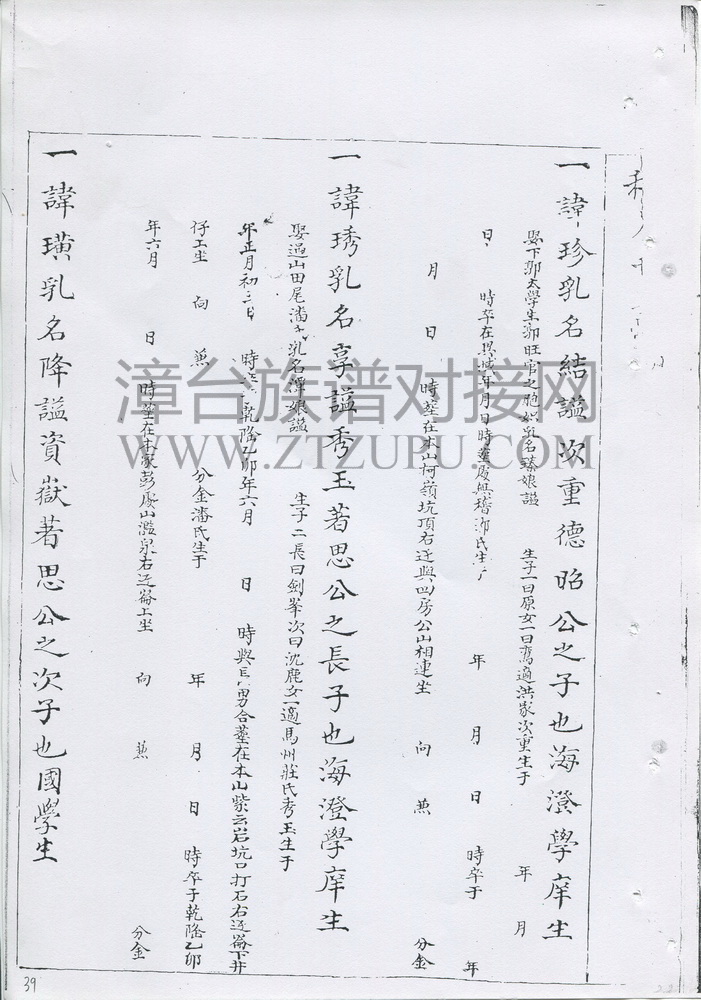 一諱珍乳名結謚次重德昭公之子也海澄學庠生
娶下郭太學生郭旺官之胞妹乳名臻娘謚 生子一曰原女一曰鸞適洪家次重生于 年 月
日 時卒在縣城年月日時葬 郭氏生于 年 月 日 時卒于 年
月 日 時葬在本山柯嶺坑頂右边與四房公山相連坐 向 兼 分金
一諱琇乳名享謚秀玉著思公之長子也海澄學庠生
娶過山田尾潘 乳名澤娘謚 生子二長曰劍峯次曰沈鹿女一適馬州莊氏秀玉生于
年正月初三日 時 乾隆乙卯年六月 日 時與 男合葬在本山紫云岩坑口打石右边崙下井
仔上坐 向 兼 分金潘氏生于 年 月 日 時卒于乾隆乙卯
年六月 日 時葬在本家彭厝山濫泉右边崙上坐 向 兼 分金
一諱璜乳名降謚資嶽著思公之次子也國學生
39
漳台族谱对接网
WWW.ZTZUPU.COM